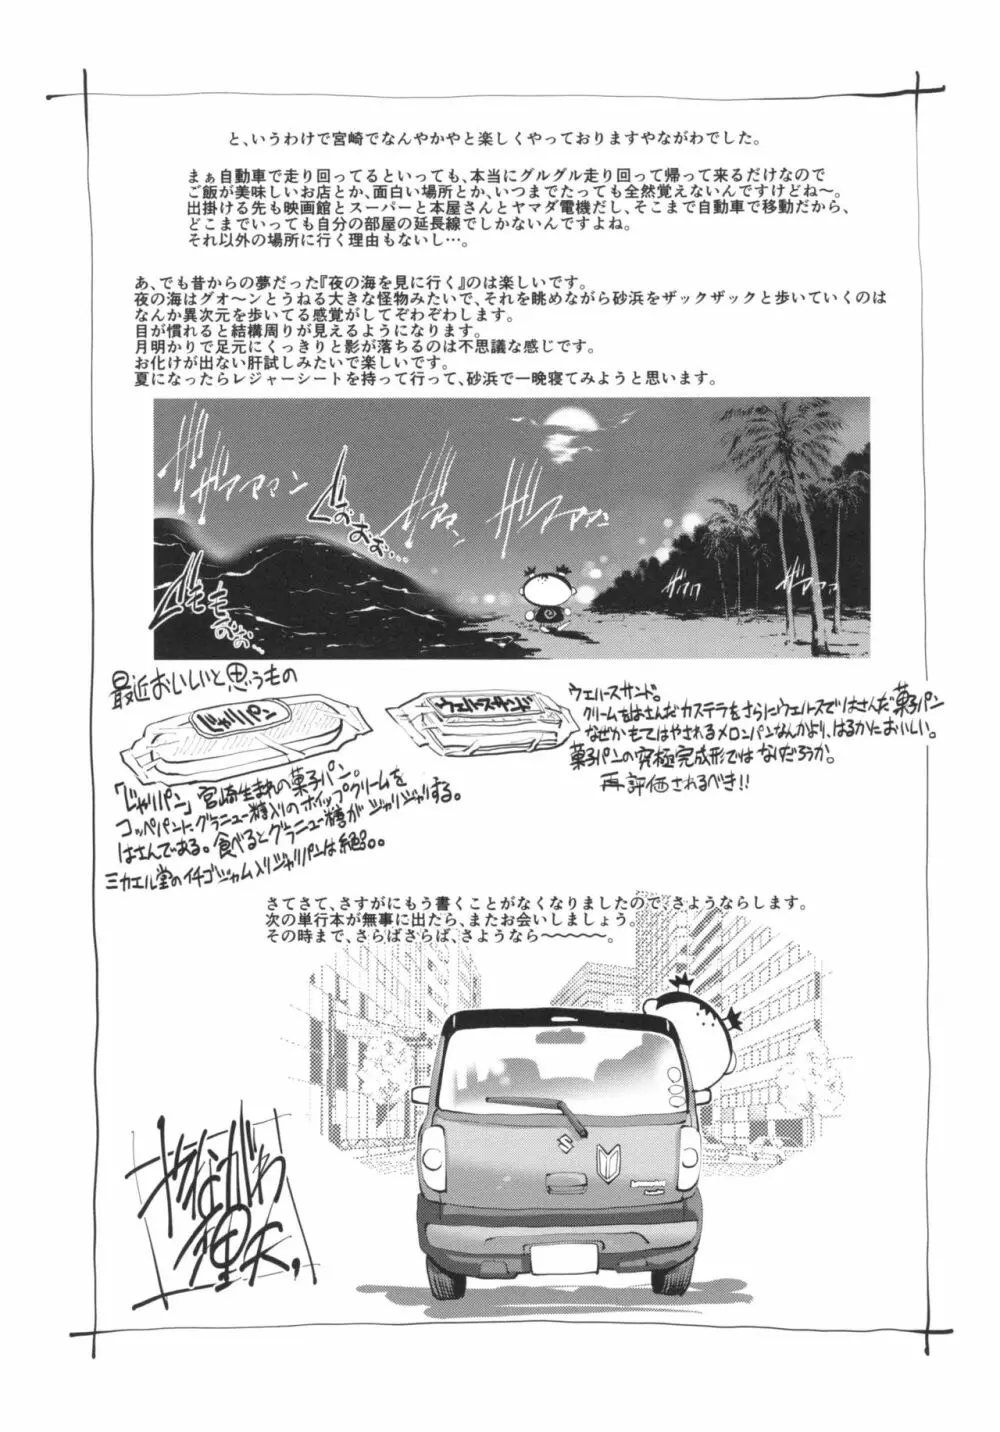 と、いうわけで宮崎でなんやかやと楽しくやっておりますやながわでした。
まぁ自動車で走り回ってるといっても、本当にグルグル走り回って帰って来るだけなので
ご飯が美味しいお店とか、面白い場所とか、いつまでたっても全然覚えないんですけどね〜。
出掛ける先も映画館とスーパーと本屋さんとヤマダ電機だし、そこまで自動車で移動だから、
どこまでいっても自分の部屋の延長線でしかないんですよね。
それ以外の場所に行く理由もないし…。
あ、でも昔からの夢だった『夜の海を見に行く』のは楽しいです。
夜の海はグオ〜ンとうねる大きな怪物みたいで、それを眺めながら砂浜をザックザックと歩いていくのは
なんか異次元を歩いてる感覚がしてぞわぞわします。
目が慣れると結構周りが見えるようになります。
月明かりで足元にくっきりと影が落ちるのは不思議な感じです。
お化けが出ない肝試しみたいで楽しいです。
夏になったらレジャーシートを持って行って、砂浜で一晩寝てみようと思います。
最近おいしいと思うもの
じゃりパン
「じゃりパン」宮崎生まれの菓子パン。
コッペパンにグラニュー糖入りのホイップクリームを
はさんである。食べるとグラニュー糖がジャリジャリする。
ミカエル堂のイチゴジャム入りジャリパンは絶品。
ウエハースサンド
ウエハースサンド。
クリームをはさんだカステラをさらにウエハースではさんだ菓子パン
なぜかもてはやされるメロンパンなんかより、はるかにおいしい。
菓子パンの究極完成形ではないだろうか。
再評価されるべき!!
さてさて、さすがにもう書くことがなくなりましたので、さようならします。
次の単行本が無事に出たら、またお会いしましょう。
その時まで、さらばさらば、さようなら〜〜〜〜〜。
やながわ
理央,